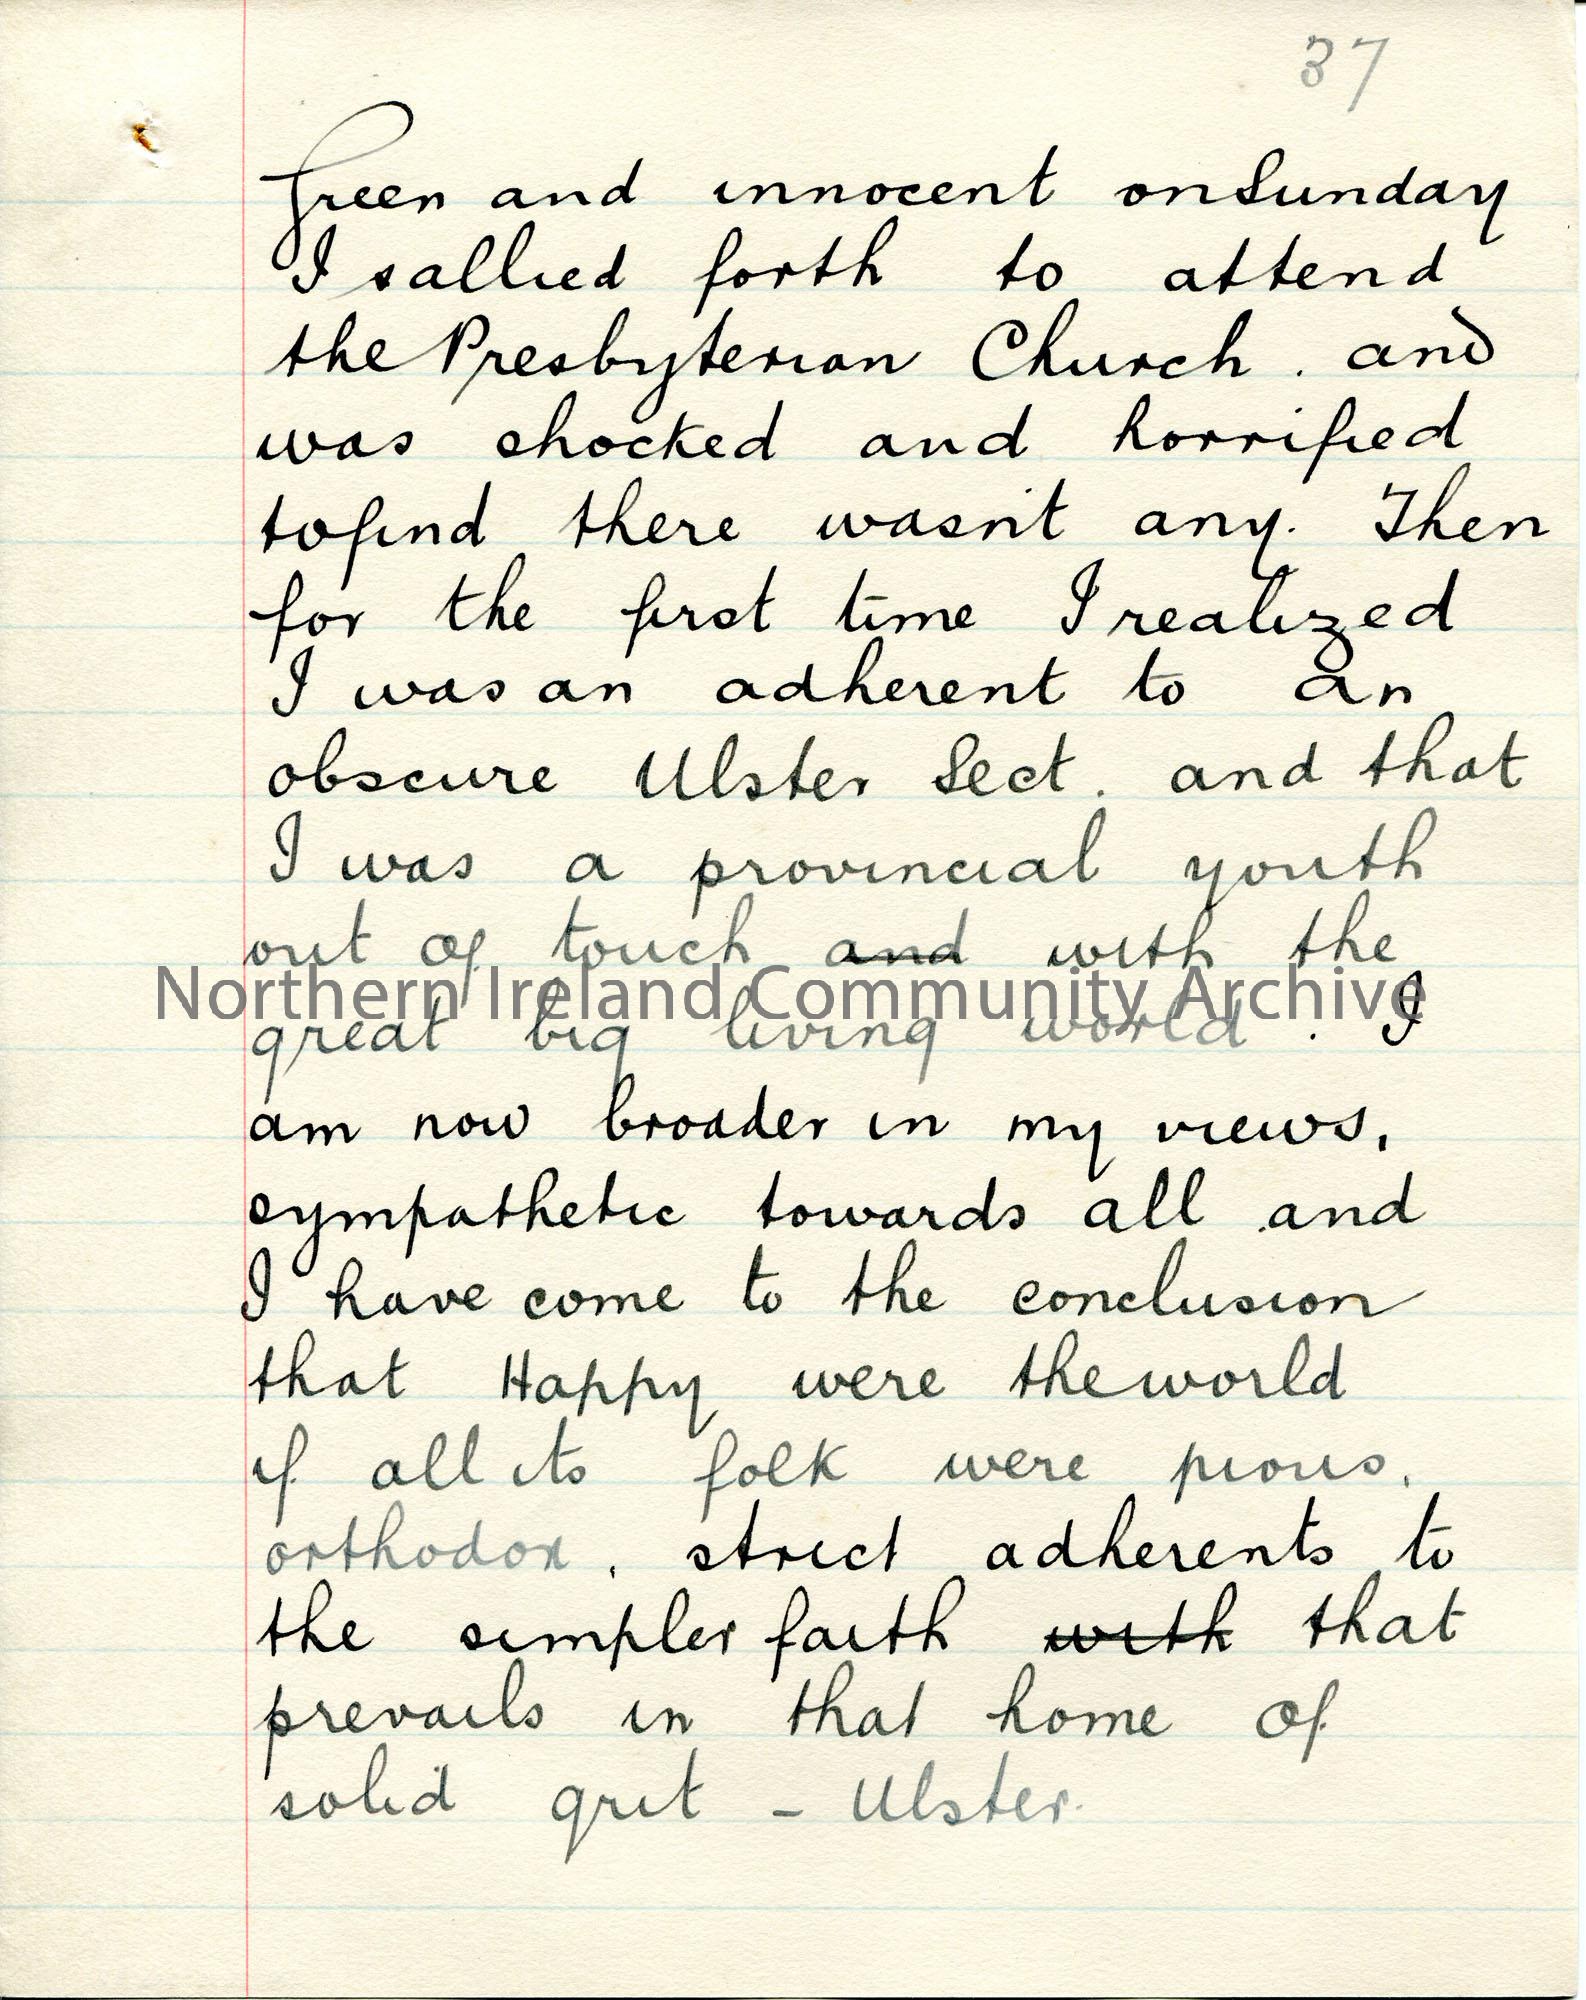 37
Green and innocent on Sunday
I sallied forth to attend
the Presbyterian Church. and
was shocked and horrified
to find there wasn't any. Then
for the first time I realized
I was an adherent to an
obscure Ulster Sect. and that
I was a provincial youth
out of touch and with the
Northern Ireland Community Archive
great big living world. I
am now broader in my views,
sympathetic towards all and
I have come to the conclusion
that Happy were the world
if all its folk were pious,
orthodox, strict adherents to
the simpler faith with that
prevails in that home of
solid grit - Ulster.